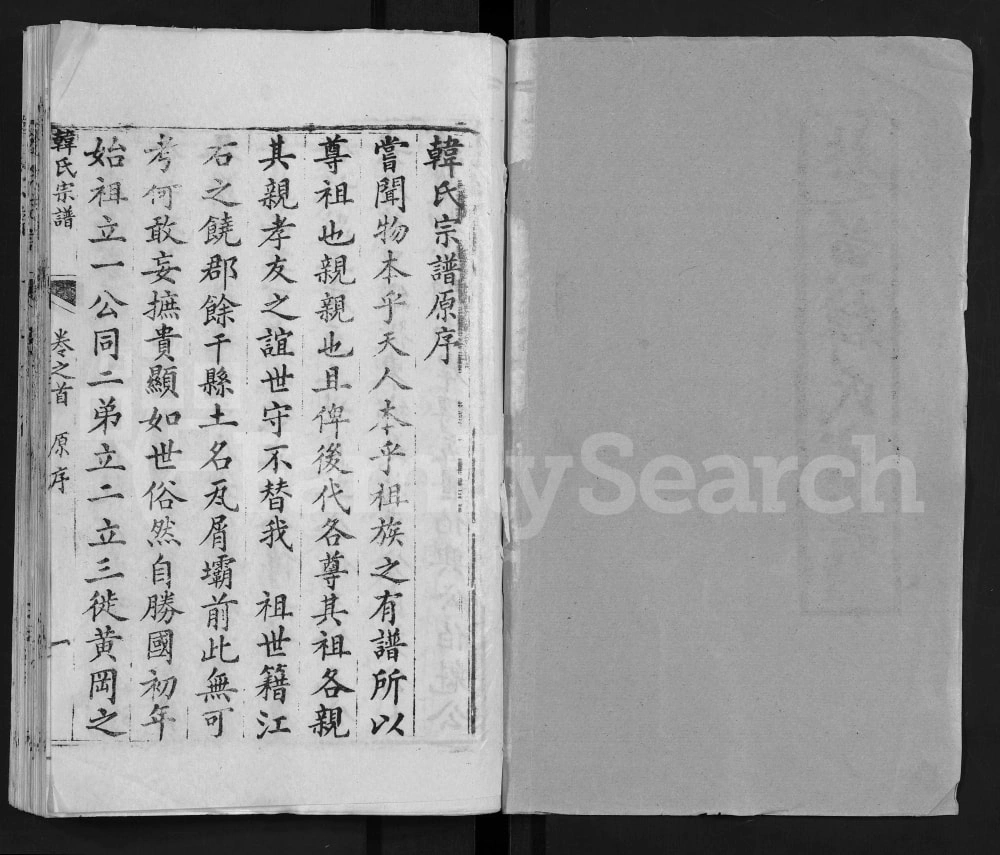 韓氏宗譜原序
嘗聞物本乎天人本乎祖族之有譜所以
尊祖也親親也且俾後代各尊其祖各親
其親孝友之誼世守不替我 祖世籍江
右之饒郡餘干縣土名瓦屑壩前此無可
考何敢妄摭貴顯如世俗然自勝國初年
始祖立一公同二弟立二立三徙黃岡之
韓氏宗譜 卷之首 原序 一
FamilySearch